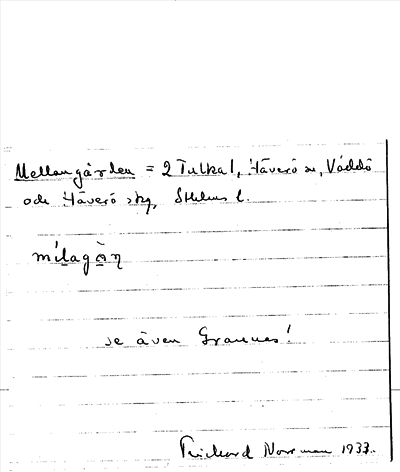 Mellangården = 2 Tulka 1, Häverö sn, Väddö
och Häverö skg, Sthlms l.
mìlagàn̥
se även Grannes!
Rickard Norrman 1933.